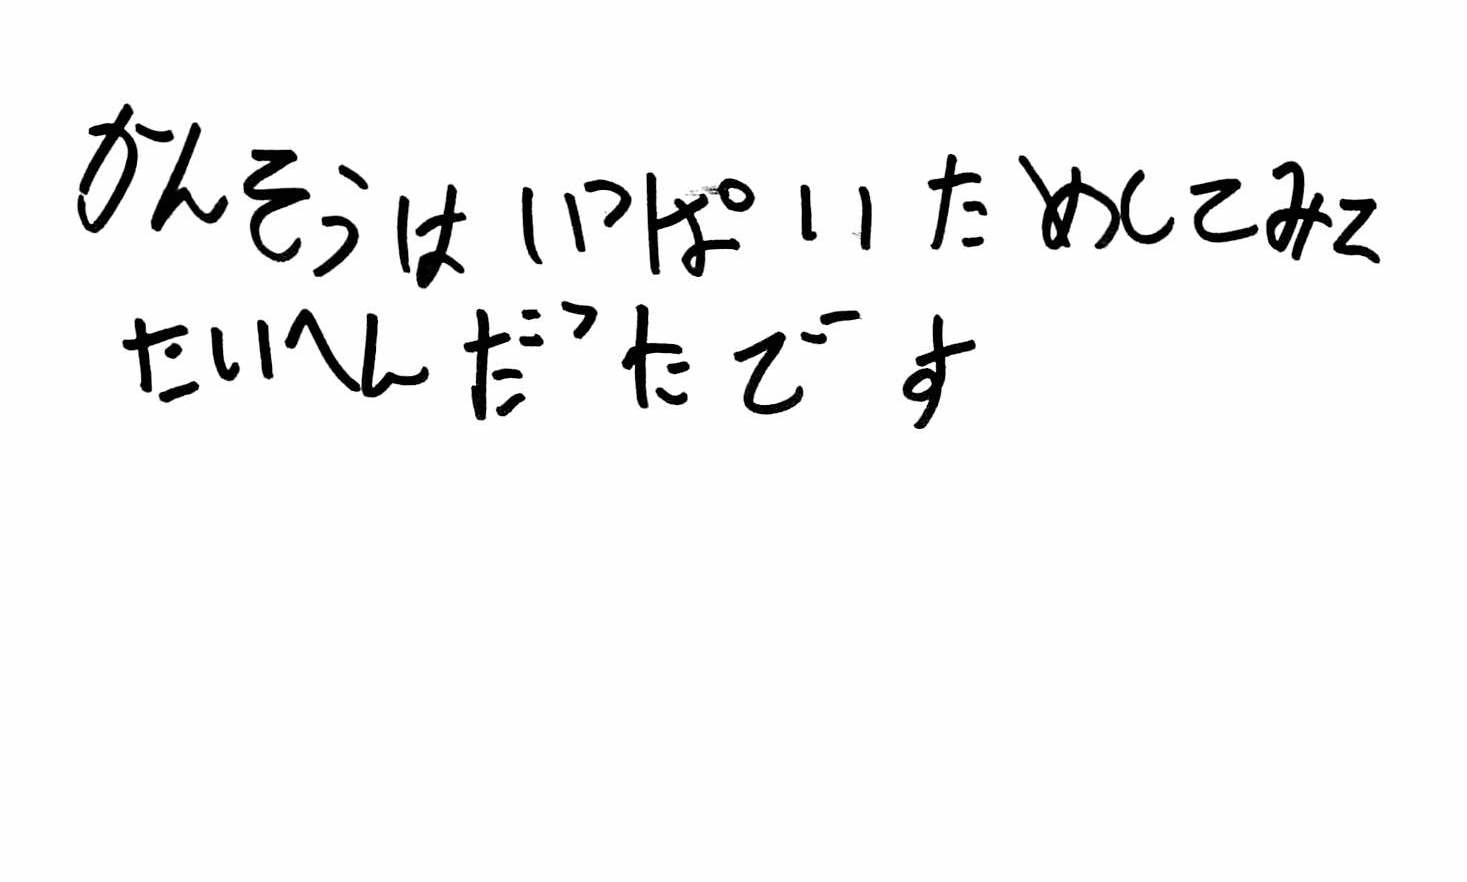 かんそうはいっぱいためしてみて
たいへんだったです